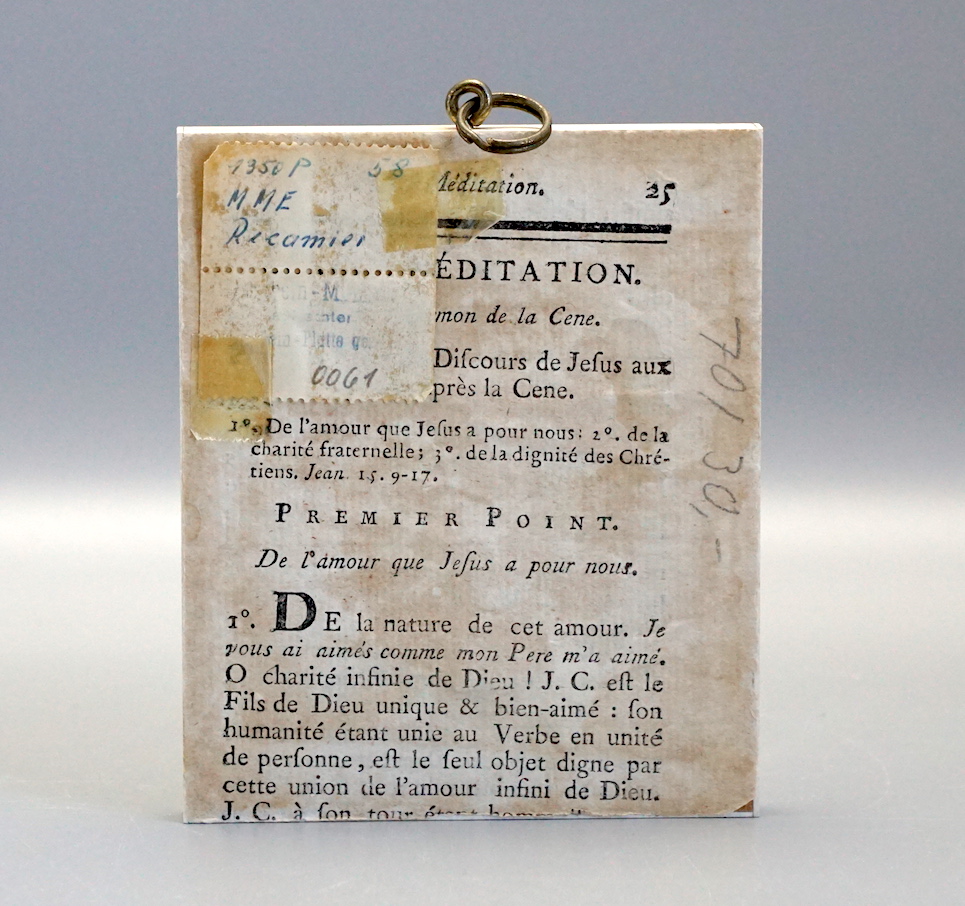 1350 P 58
MME
Récamier
0061
Méditation. 25
ÉDITATION.
mon de la Cene.
Diſcours de Jeſus aux
près la Cene.
1°. De l'amour que Jeſus a pour nous: 2°. de la
charité fraternelle; 3°. de la dignité des Chré-
tiens. Jean. 15. 9-17.
PREMIER POINT.
De l'amour que Jeſus a pour nous.
1°. DE la nature de cet amour. Je
vous ai aimés comme mon Pere m'a aimé.
O charité infinie de Dieu ! J. C. eſt le
Fils de Dieu unique & bien-aimé : ſon
humanité étant unie au Verbe en unité
de perſonne, eſt le ſeul objet digne par
cette union de l'amour infini de Dieu.
J. C. à ſon tour étant
701 30,-